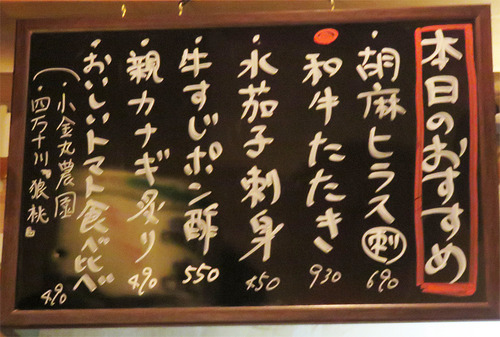 本日のおすすめ
・胡麻ヒラス 刺 690
和牛たたき 930
・水茄子刺身 450
・牛すじポン酢 550
・親カナギ炙り 490
・おいしいトマト食べ比べ 490
(・小金丸農園
・四万十川『狼桃』